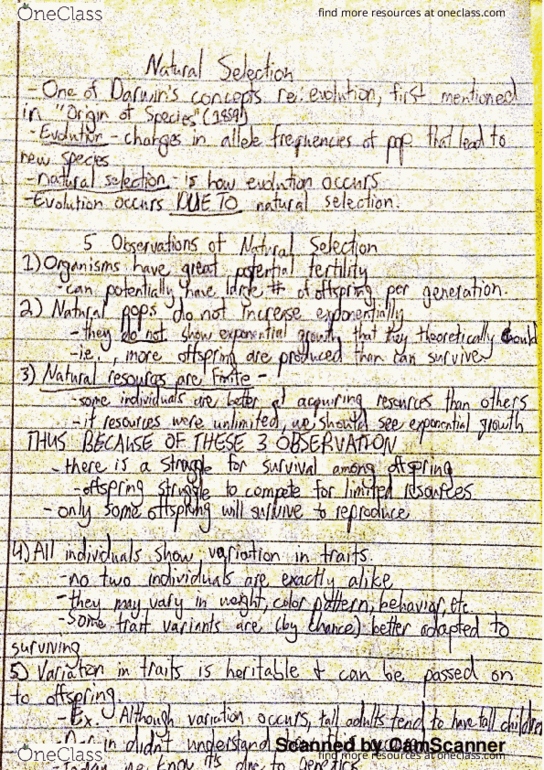 OneClass
find more resources at oneclass.com
Natural Selection
- One of Darwin's concepts re: evolution, first mentioned
in "Origin of Species" (1859)
- Evolution - changes in allele frequencies of pop that lead to
new species
- natural selection - is how evolution occurs
- Evolution occurs DUE TO natural selection.
5 Observations of Natural Selection
1) Organisms have great potential fertility
- can potentially have large # of offspring per generation.
2) Natural pops do not increase exponentially
- they do not show exponential growth that they theoretically could
- ie., more offspring are produced than can survive
3) Natural resources are finite -
- some individuals are better at acquiring resources than others
- if resources were unlimited, we should see exponential growth
THUS BECAUSE OF THESE 3 OBSERVATION
- there is a struggle for survival among offspring
- offspring struggle to compete for limited resources
- only some offspring will survive to reproduce
4) All individuals show variation in traits.
- no two individuals are exactly alike
- they may vary in weight, color pattern, behavior, etc
- Some trait variants are (by chance) better adapted to
surviving
5) Variation in traits is heritable & can be passed on
to offspring.
- Ex. Although variation occurs, tall adults tend to have tall children
- didn't understand
Scanned by CamScanner
OneClass
find more resources at oneclass.com
- Today we know it's due to genetics